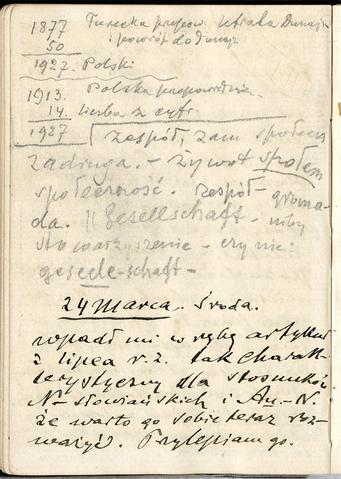 1877 Turecka przepow. utrata Dunaju
50 i powrót do Dunaju
1927. Polski
1913. Polska przepowiednia.
14. liczba z cyfr.
1927 zespół, zam społem
zadruga. – żywot społem
społeczność. zespół – groma-
da. || Gesellschaft – niby
stowarzyszenie – czy nie:
gesede-schaft –
24 Marca. Środa.
wpadł mi w rękę artykuł
z lipca r. z. tak charak-
terystyczny dla stosunków
N– słowiańskich i Au.–N.
że warto go sobie teraz roz-
ważyć. Przylepiam go.